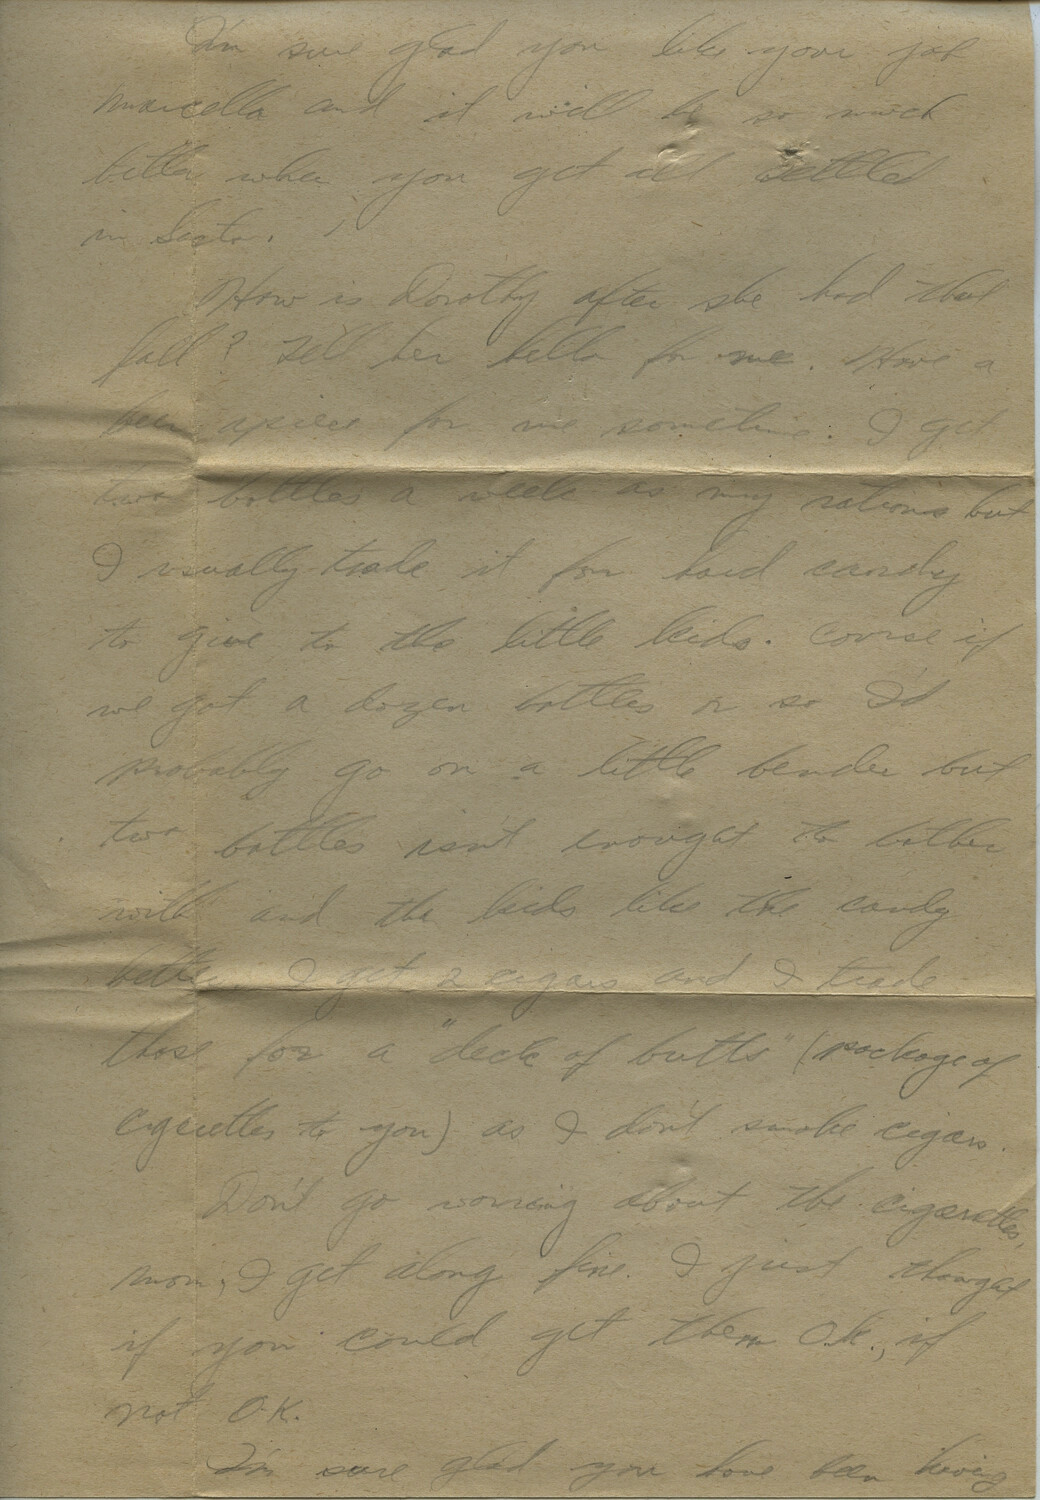 I'm sure glad you like your job
Marcella and it will be so much
better when you get all settled
in Sister.
How is Dorothy after she had that
fall? Tell her hello for me. Have a
beer apiece for me sometime. I get
two bottles a week as my rations but
I usually trade it for hard candy
to give to the little kids. Course if
we got a dozen bottles or so I'd
probably go on a little bender but
two bottles isn't enought to bother
with and the kids like the candy
better. I get 2 cigars and I trade
those for a "deck of butts" (package of
cigarettes to you) as I don't smoke cigars.
Don't go worring about the cigarettes,
mom, I get along fine. I just thought
if you could get them O.K., if
not O.K.
I'm sure glad you have been having